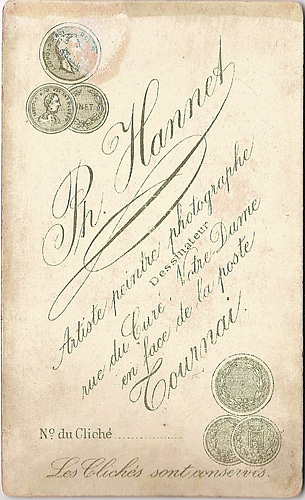 NET
Ph. Hannet
Artiste peintre photographe
Dessinateur
rue du Curé, Notre Dame
en face de la poste
Tournai.
No. du Cliché
Les Clichés sont conservés.